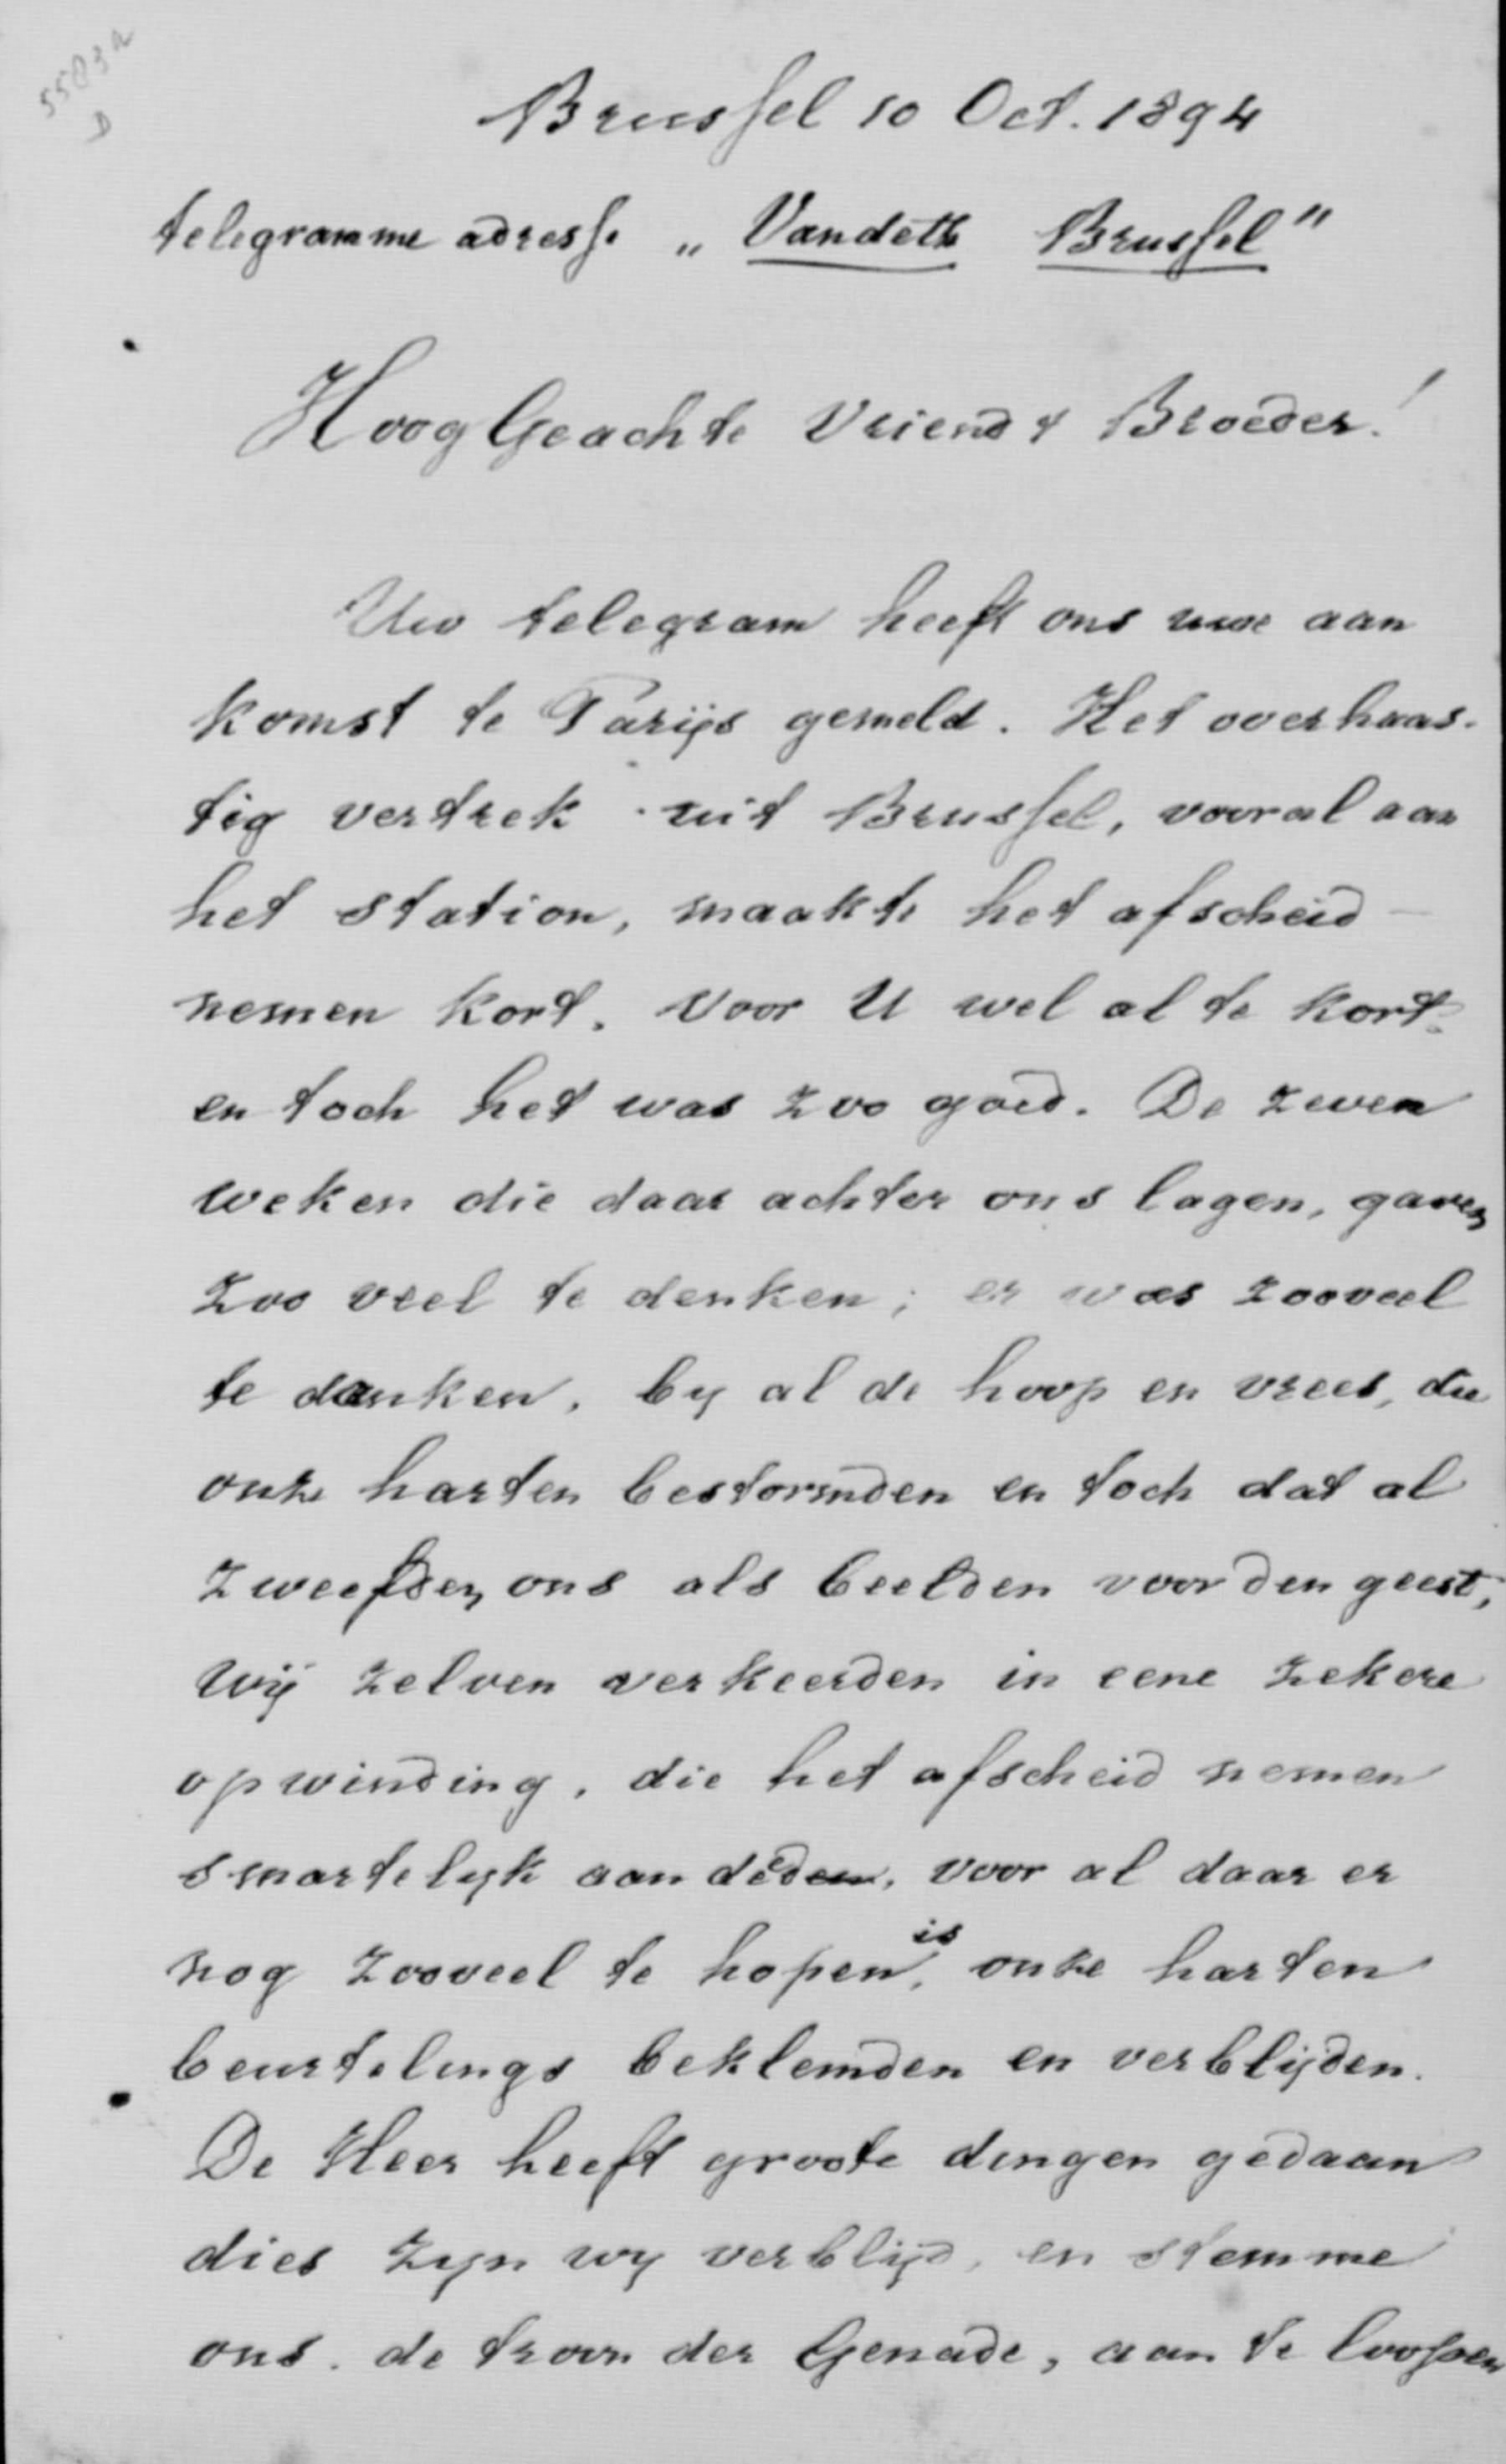 5583a
D
Brussel 10 Oct. 1894
telegramme adresse „Vandeth Brussel"
HoogGeachte Vriend & Broeder!
Uw telegram heeft ons uwe aan
komst te Parijs gemeld. Het overhaas-
tig vertrek uit Brussel, vooral aan
het station, maakte het afscheid -
nemen kort. Voor U wel al te kort
en toch het was zoo goed. De zeven
weken die daar achter ons lagen, gaven
zoo veel te denken; er was zooveel
te danken, by al de hoop en vrees, die
onze harten bestormden en toch dat al
zweefden ons als beelden voor den geest,
Wij zelven verkeerden in eene zekere
opwinding, die het afscheid nemen
smartelyk aan deden, voor al daar er
nog zooveel te hopen is, onze harten
beurtelings beklemden en verblijden.
De Heer heeft groote dingen gedaan
dies zyn wy verblijd, en stemme
ons. de troon der Genade, aan te loopen